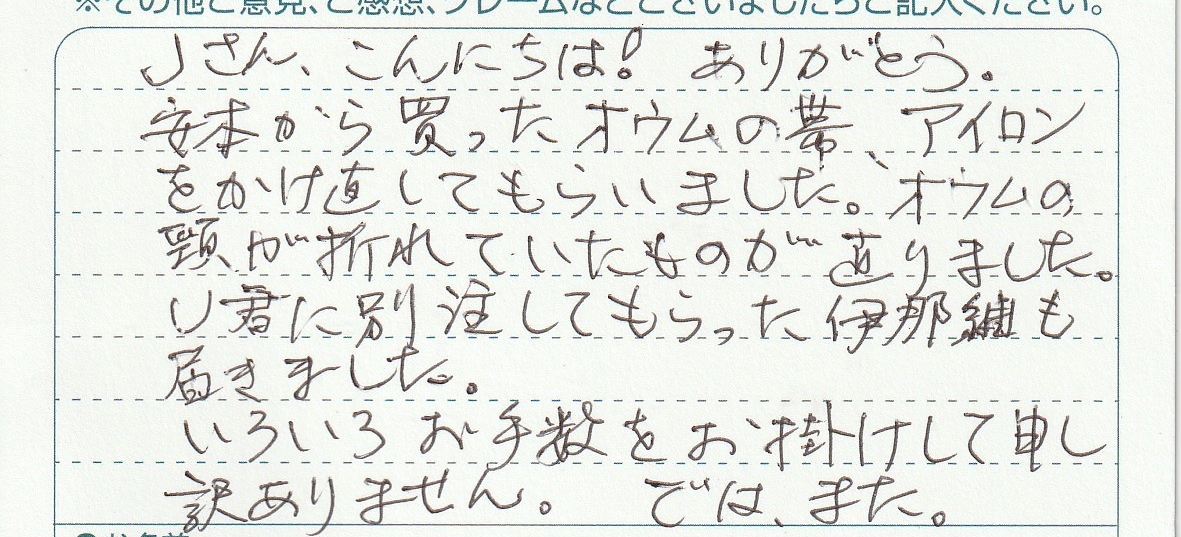 ※その他ご意見、ご感想、クレームなどございましたらご記入ください。
Jさん、こんにちは! ありがとう。
安本から買ったオウムの帯、アイロン
をかけ直してもらいました。オウムの
頸が折れていたものが直りました。
U君に別注してもらった伊那紬も
届きました。
いろいろお手数をお掛けして申し
訳ありません。 では、また。